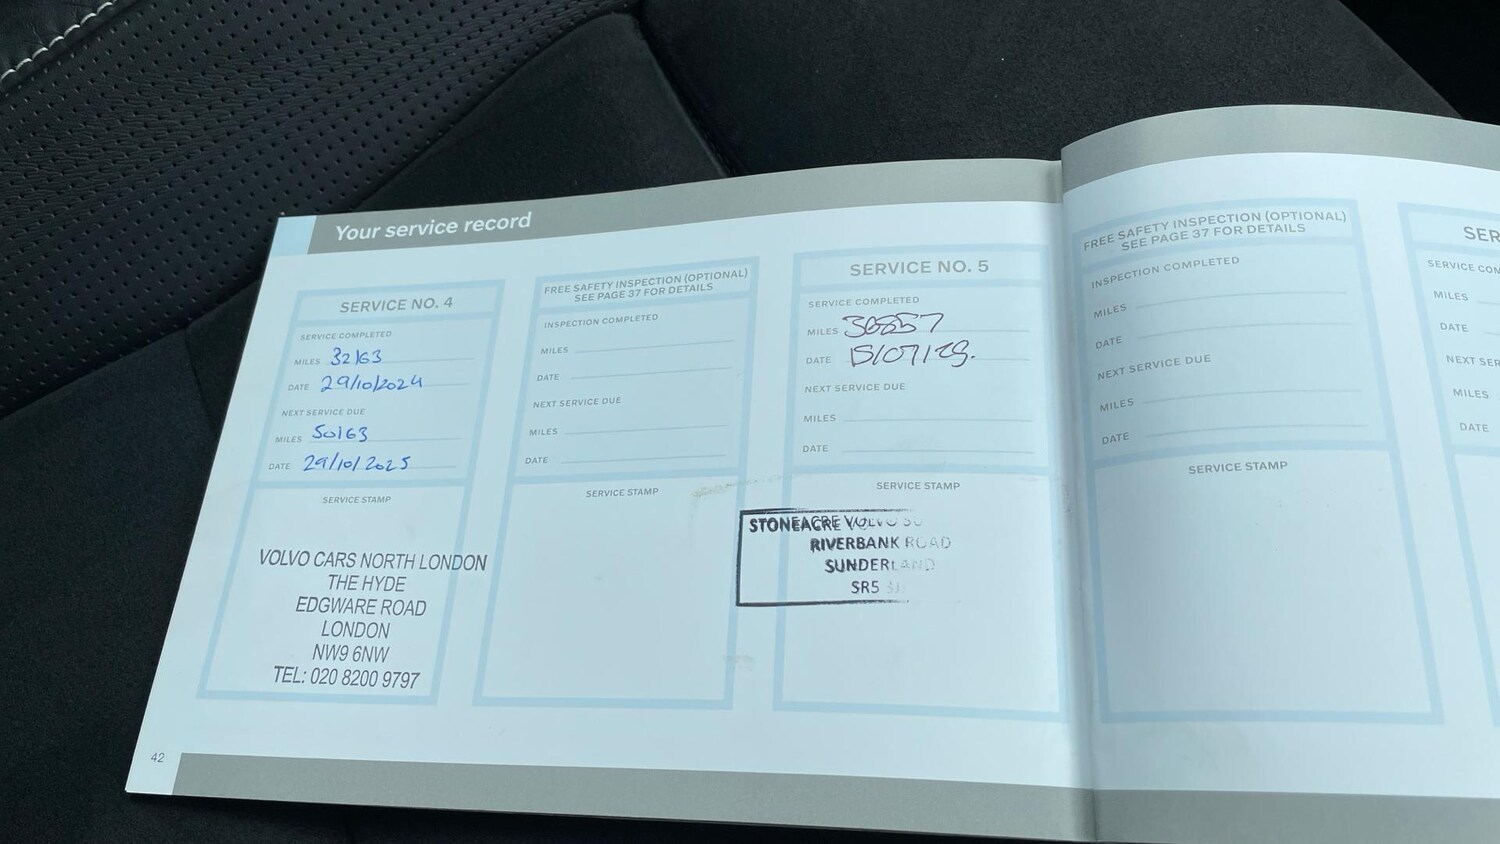 Your service record
SERVICE NO. 4
SERVICE COMPLETED
MILES 32163
DATE 29/10/2024
NEXT SERVICE DUE
MILES 50163
DATE 29/10/2025
SERVICE STAMP
VOLVO CARS NORTH LONDON
THE HYDE
EDGWARE ROAD
LONDON
NW9 6NW
TEL: 020 8200 9797
42
FREE SAFETY INSPECTION (OPTIONAL)
SEE PAGE 37 FOR DETAILS
INSPECTION COMPLETED
MILES
DATE
NEXT SERVICE DUE
MILES
DATE
SERVICE STAMP
SERVICE NO. 5
SERVICE COMPLETED
MILES
DATE
NEXT SERVICE DUE
MILES
DATE
SERVICE STAMP
STONEACRE VOLVO
RIVERBANK ROAD
SUNDERLAND
SR5
FREE SAFETY INSPECTION (OPTIONAL)
SEE PAGE 37 FOR DETAILS
INSPECTION COMPLETED
MILES
DATE
NEXT SERVICE DUE
MILES
DATE
SERVICE STAMP
SER
SERVICE COM
MILES
DATE
NEXT SER
MILES
DATE